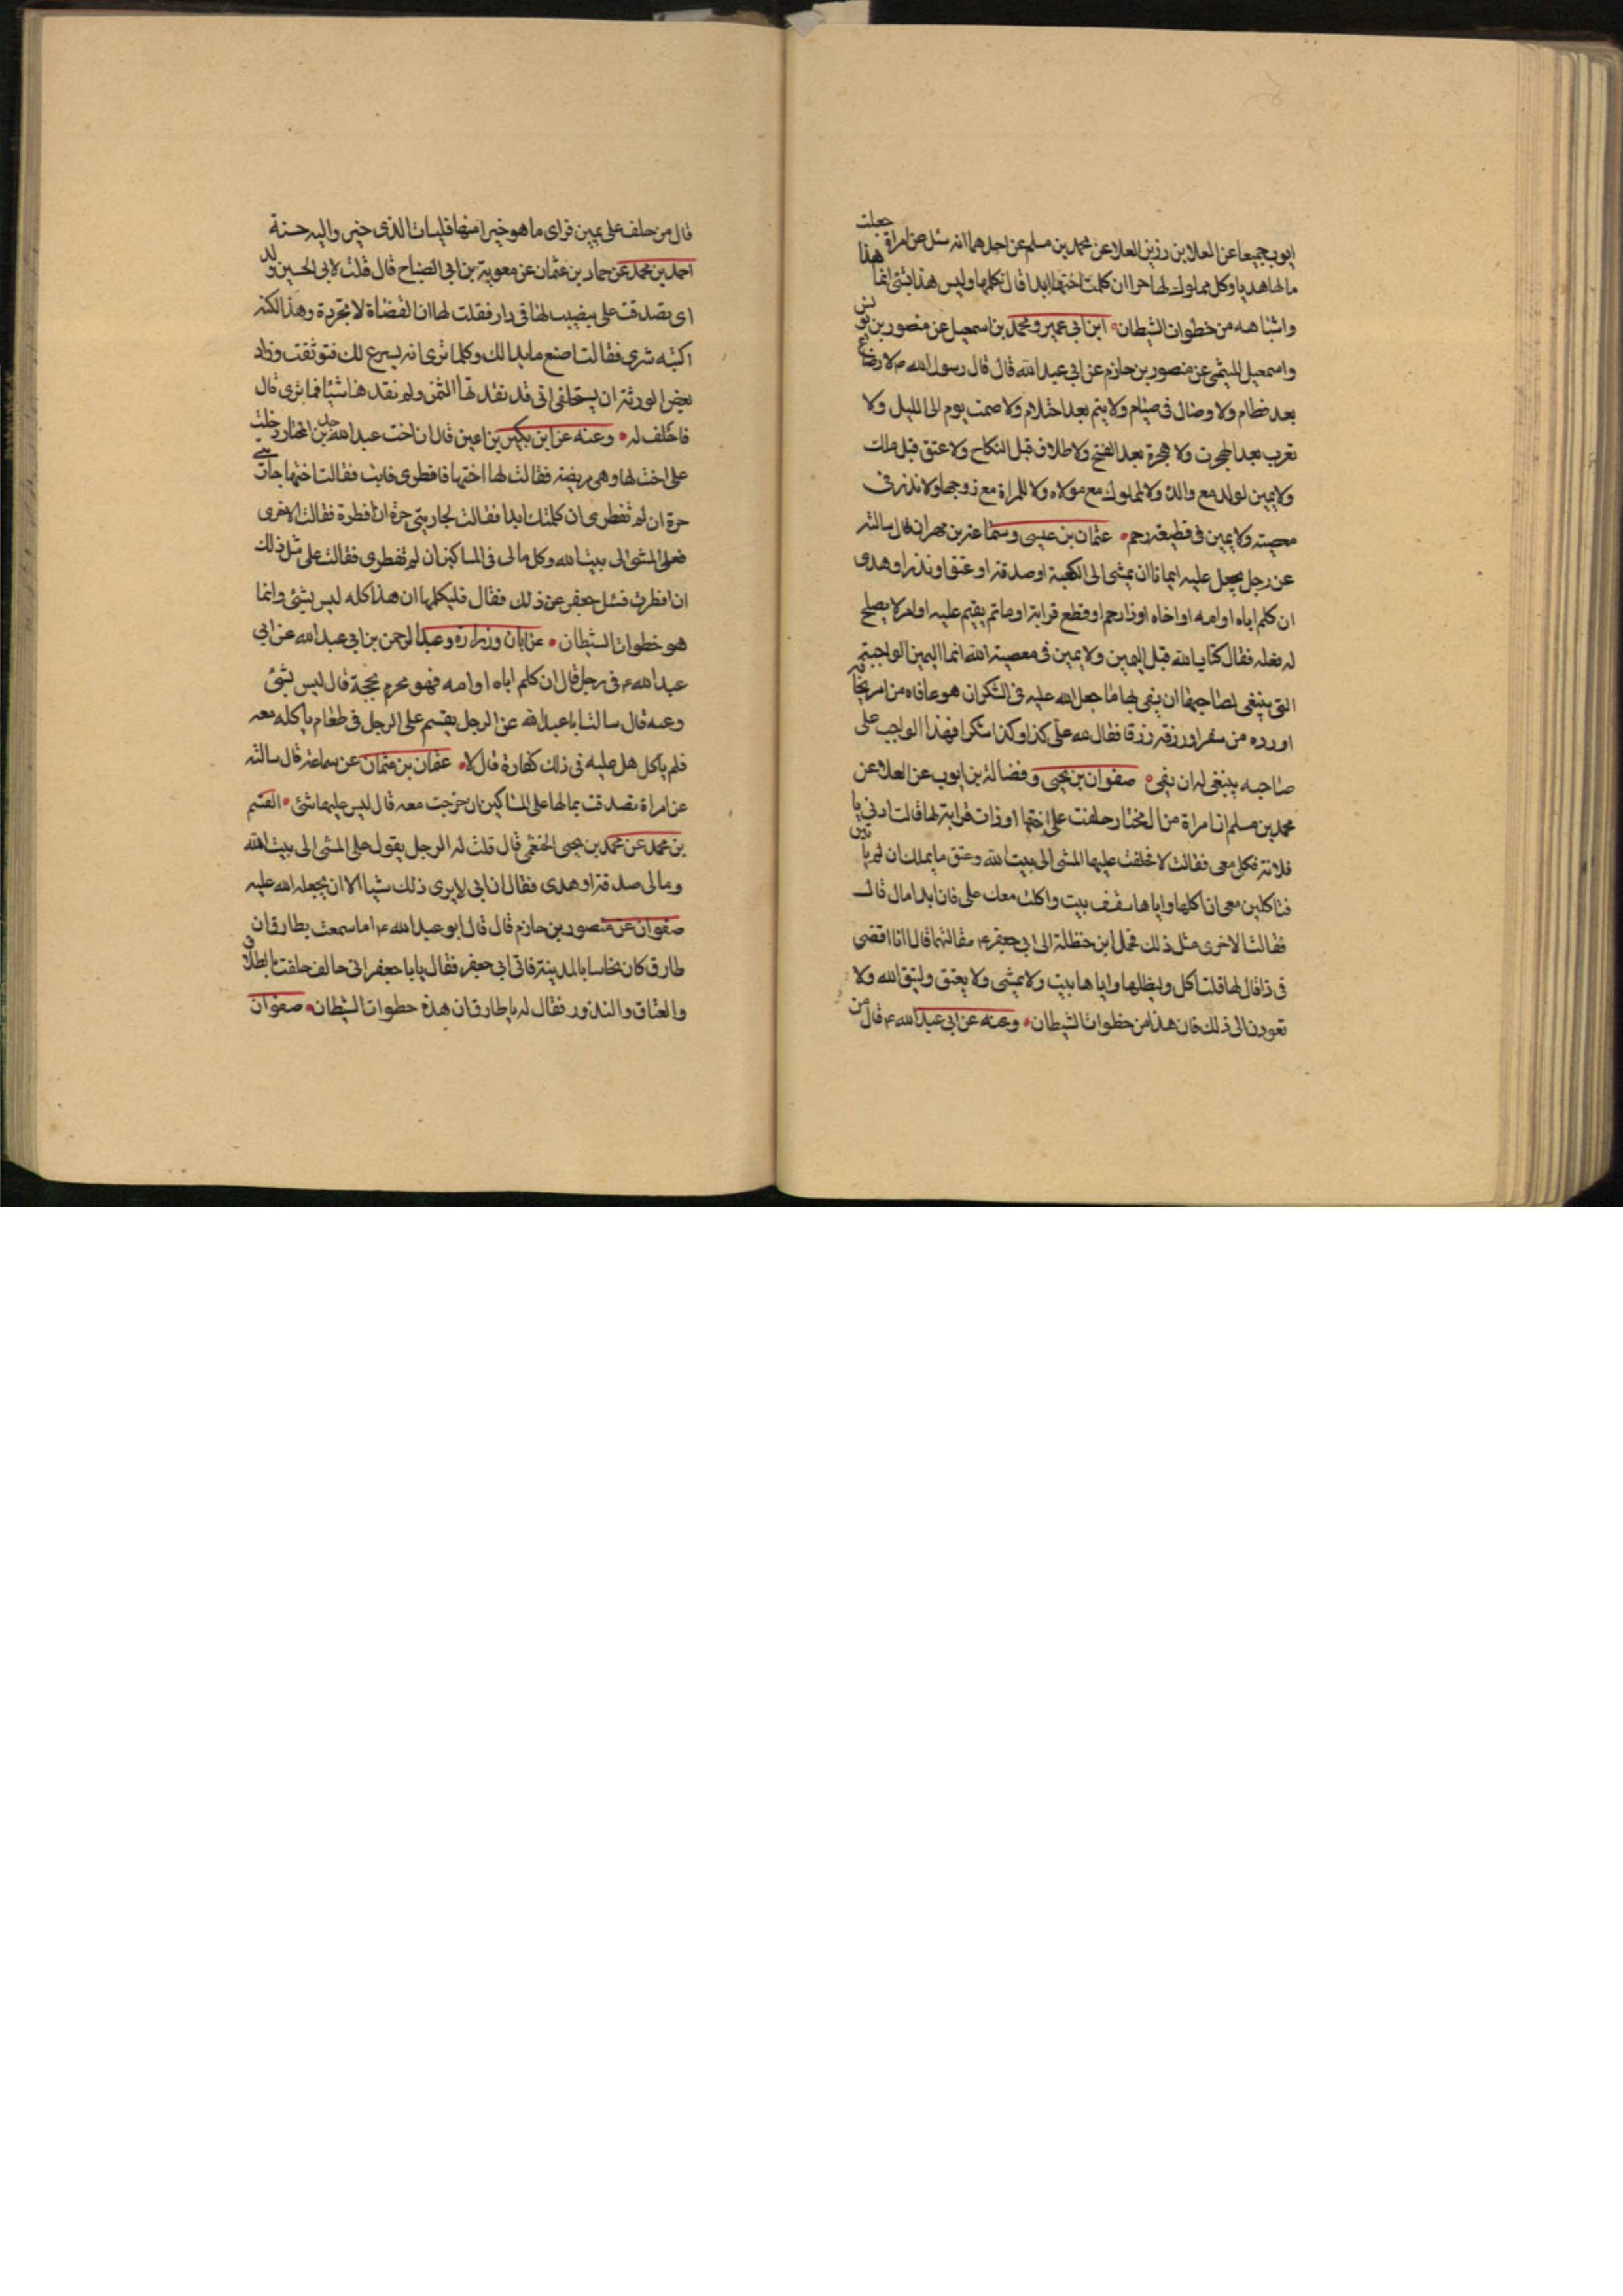 ايوب جميعا عن العلا بن رزين العلا عن محمد بن مسلم عن احدهما انه سئل عن امراة جعلت
مالها هديا وكل مملوك لها حرا ان كلمت اختها ابدا قال تكلمها وليس هذا بشئ انما هذا
واشباهه من خطوات الشيطان ابن ابى عمير ومحمد بن اسمعيل عن منصور بن يونس
واسمعيل الميثمى عن منصور بن حازم عن ابى عبدالله قال قال رسول الله ص لا رضاع
بعد فطام ولا وصال فى صيام ولا يتم بعد احتلام ولا صمت يوم الى الليل ولا
تعرب بعد الهجرت ولا هجرة بعد الفتح ولا طلاق قبل النكاح ولا عتق قبل ملك
ولا يمين لولد مع والده ولا لمملوك مع مولاه ولا للمراة مع زوجها ولا نذر فى
معصيته ولا يمين فى قطيعة رحم عثمان بن عيسى وسماعة بن مهران قال سالته
عن رجل يجعل عليه ايمانا ان يمشى الى الكعبة او صدقة او عتق او نذر او هدى
ان كلم اباه او امه او اخاه او ذا رحم او قطع قرابة او ماتم يقيم عليه او امر لا يصلح
له فعله فقال كتاب الله قبل اليمين ولا يمين فى معصية الله انما اليمين الواجبة
التى ينبغى لصاحبها ان يفى بها ما جعل الله عليه فى الشكر ان هو عافاه من
او رده من سفر او رزقه رزقا فقال لله على كذا وكذا شكرا فهذا الواجب على
صاحبه ينبغى له ان يفى صفوان بن يحيى وفضالة بن ايوب عن العلا عن
محمد بن مسلم ان امراة من ال مختار حلفت على اختها او ذات قرابة لها قالت ادنى يا
فلانة فكلى معى فقالت لا فحلفت عليها المشى الى بيت الله وعتق ما يملك ان لم ياتين
فتاكلين معى ان اظلها واياها سقف بيت واكلت معك على خوان ابدا قال
فقالت الاخرى مثل ذلك فحمل ابن حنظلة الى ابى جعفر ع مقالتهما قال انا اقضى
فى ذا قال لها قلتاكل وليظلها واياها بيت ولا يمشى ولا يعتق وليتق الله ولا
تعودن الى ذلك فان هذا من خطوات الشيطان وعنه عن ابى عبدالله ع قال من
قال من حلف على يمين فراى ما هو خيرا منها فليات الذى خير وا حسنة
احمد بن محمد عن حماد بن عثمان عن معوية بن ابى الصباح قال قلت لابى الحسين
اى تصدقت على بنصيب لها فى دار فقلت لها ان القضاة لا بجردة وهذا لكنه
اكتبه شرى فقالت اصنع ما بدا لك وكلما ترى انه يسوع لك فتوثقت وزاد
بعض الورثة ان يستحلفى انى قد نقدتها الثمن ولم نقدها شيئا فما ترى قال
فاحلف له وعنه عن ابن بكير بن اعين قال ان اخت عبدالله بن المختار دخلت
على اخت لها وهى مريضة فقالت لها اختها فافطرى فابت فقالت اختها جاريتى
حرة ان لم تفطرى ان كلمتك ابدا فقالت لجاريتى حرة ان افطرة فقالت الاخرى
فعلى المشى الى بيت الله وكل مالى فى المساكين ان لم تفطرى فقالت على مثل ذلك
ان افطرت فسئل جعفر عن ذلك فقال فليكلمها ان هذا كله ليس بشئ وانما
هو خطوات الشيطان عن ابان وزرارة وعبد الرحمن بن ابى عبدالله عن ابى
عبدالله ع فى رجل قال ان كلم اباه او امه فهو محرم بحجة قال ليس بشئ
وعنه قال سالت ابا عبدالله عن الرجل يقسم على الرجل فى طعام ياكله معه
فلم ياكل هل عليه فى ذلك كفارة قال لا عثمان بن عثمان عن سماعة قال سالته
عن امراة تصدقت بمالها على المساكين ان خرجت معه قال ليس عليها شئ القسم
بن محمد عن محمد بن يحيى الخثعمى قال قلت له الرجل يقول على المشى الى بيت الله
ومالى صدقة او هدى فقال ان ابى لا يرى ذلك شيا الا ان يجعله الله عليه
صفوان عن منصور بن حازم قال قال ابو عبدالله ع اما سمعت بطارق ان
طارق كان نخاسا بالمدينة فاتى ابى جعفر فقال يا با جعفر انى حالف حلفت بالطلاق
والعتاق والنذور فقال له يا طارق ان هذه خطوات الشيطان صفوان